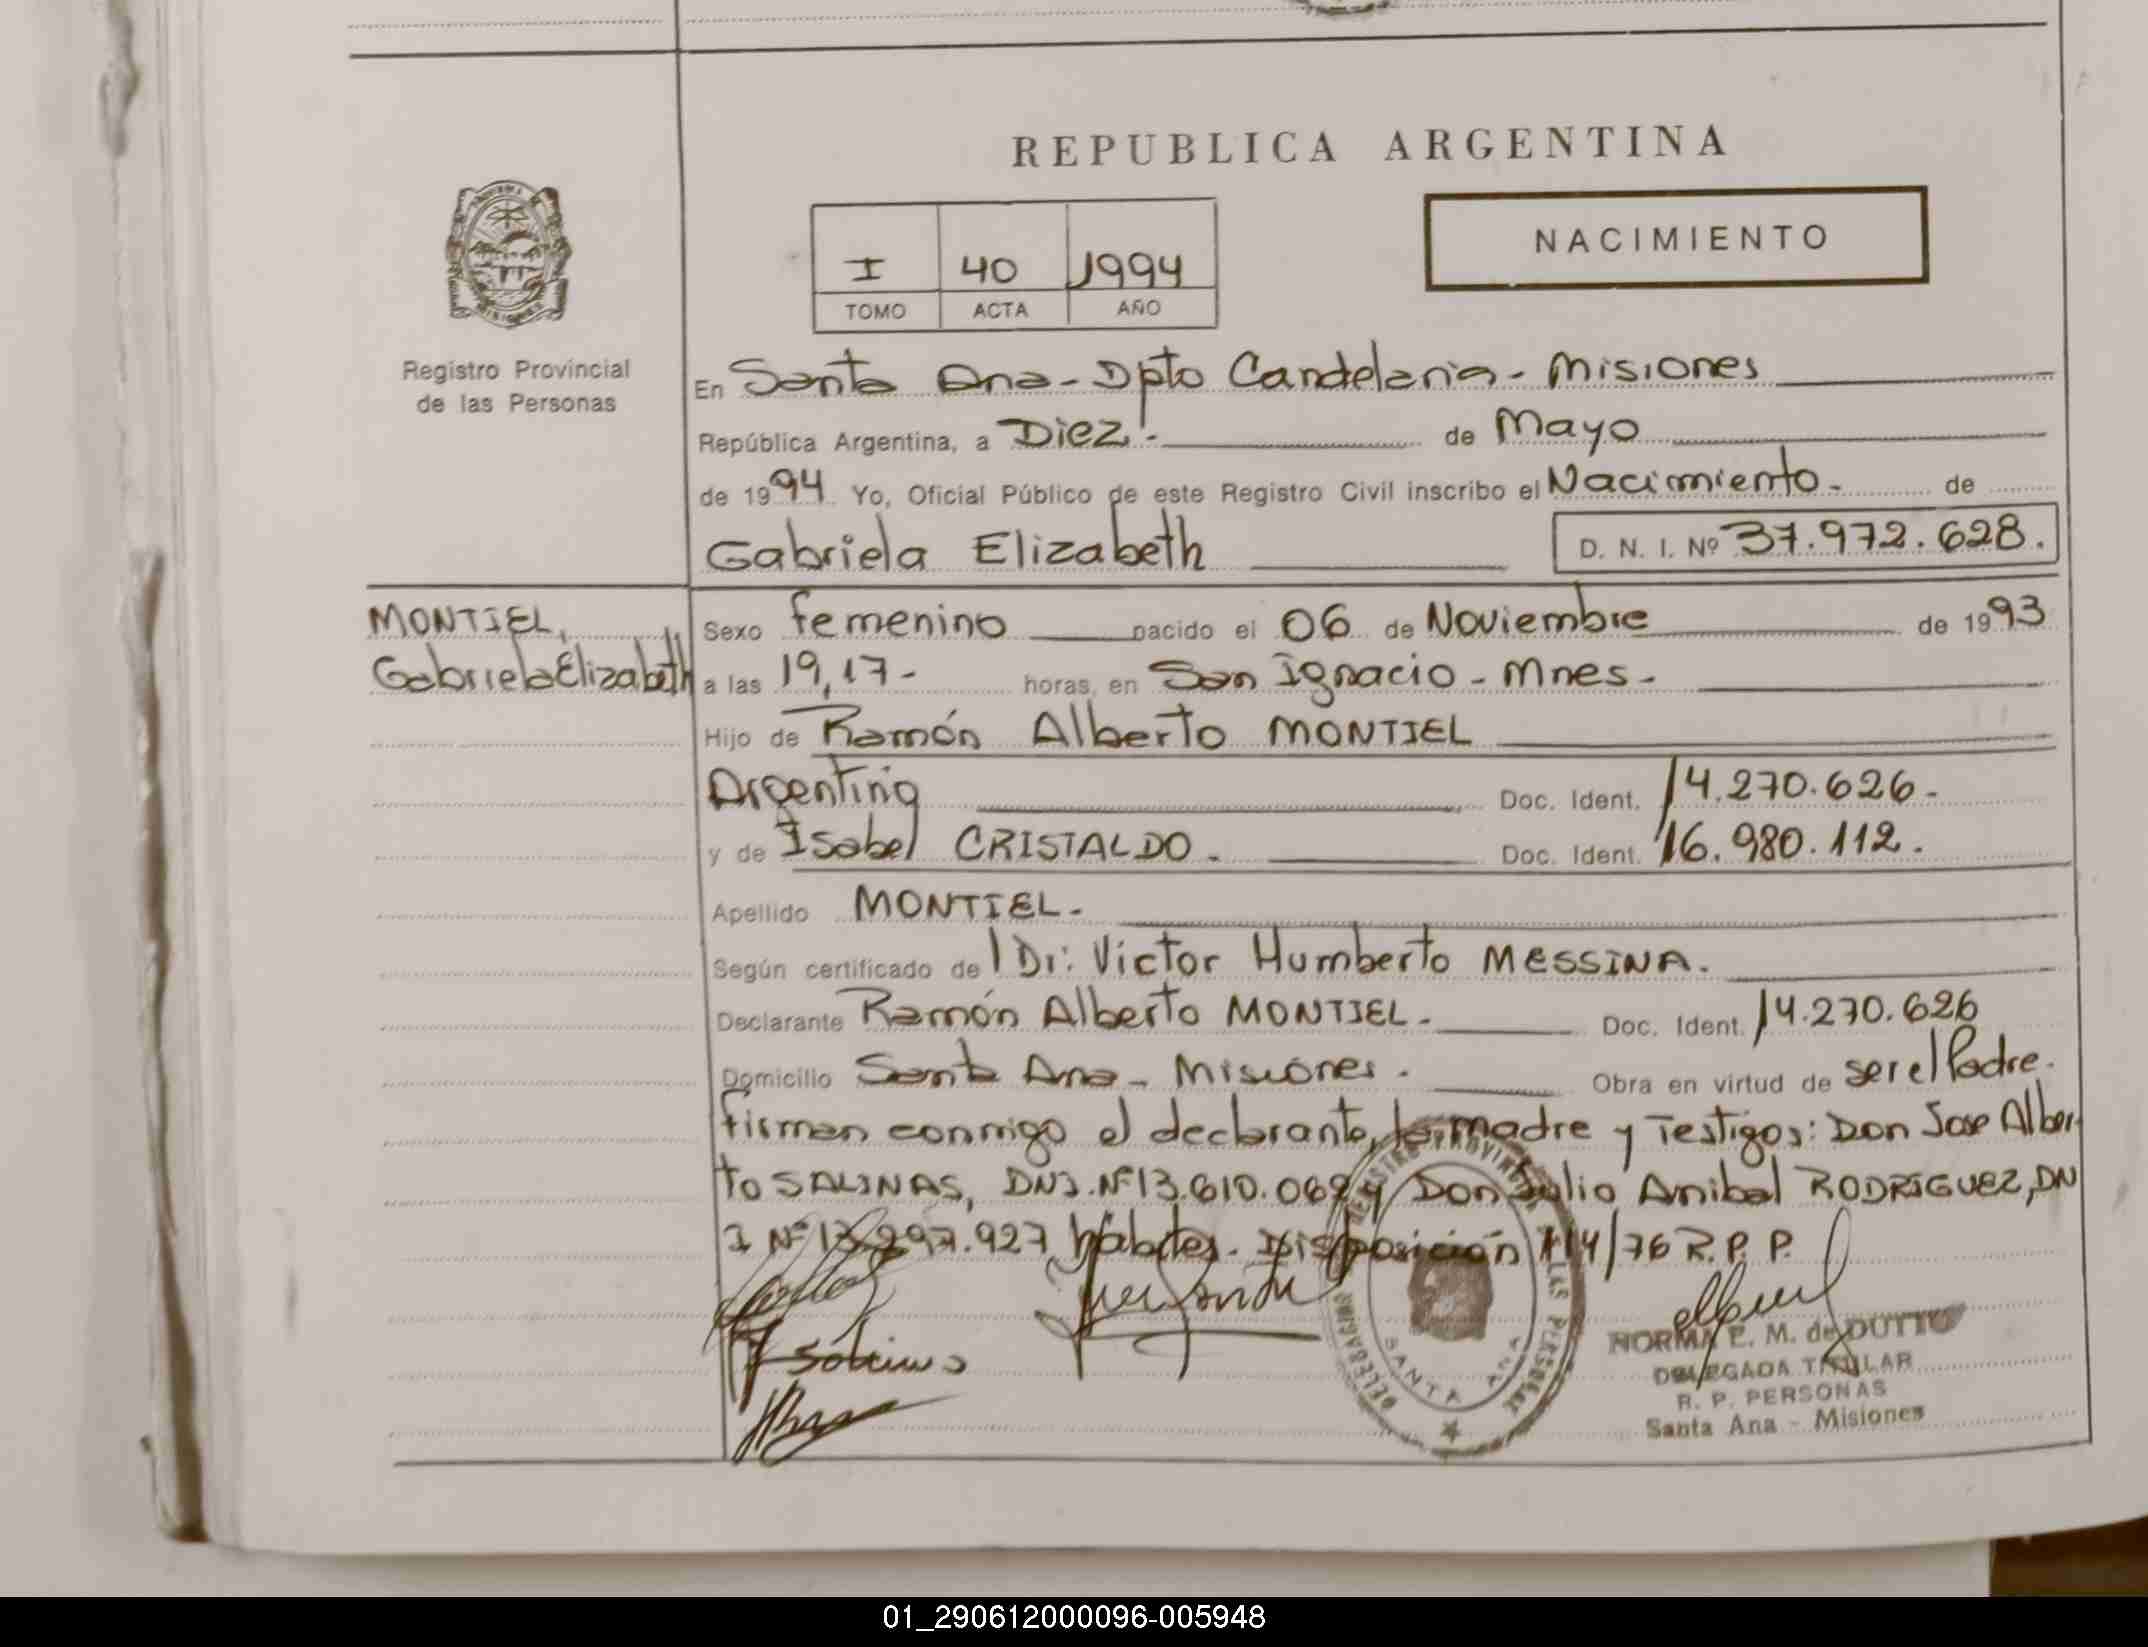 REPUBLICA ARGENTINA
NACIMIENTO
I 40 1994
TOMO ACTA AÑO
Registro Provincial
de las Personas
En Santa Ana - Dpto Candelaria - Misiones
República Argentina, a Diez.- de Mayo
de 1994 Yo, Oficial Público de este Registro Civil inscribo el Nacimiento - de
Gabriela Elizabeth D. N. I. Nº 37.972.628.
MONTIEL,
Gabriela Elizabeth
Sexo femenino nacido el 06 de Noviembre de 1993
a las 19,17- horas, en San Ignacio - Mnes -
Hijo de Ramón Alberto MONTIEL
Argentina Doc. Ident. 14.270.626 -
y de Isabel CRISTALDO. Doc. Ident. 16.980.112.
Apellido MONTIEL -
Según certificado de l Dr: Victor Humberto MESSINA.
Declarante Ramón Alberto MONTIEL - Doc. Ident. 14.270.626
Domicilio Santa Ana - Misiones. Obra en virtud de ser el Padre.
firman conmigo el declarante, la madre y Testigos: Don Jose Alber
to SALINAS, DNI. Nº 13.610.069 y Don Julio Anibal RODRIGUEZ, DN
I Nº 297.927 hábiles. Disposición 114/76 R.P.P.
DELEGACION REGISTRO PROVINCIAL DE LAS PERSONAS
SANTA ANA
NORMA E. M. de DUTTO
DELEGADA TITULAR
R. P. PERSONAS
Santa Ana - Misiones
01_290612000096-005948